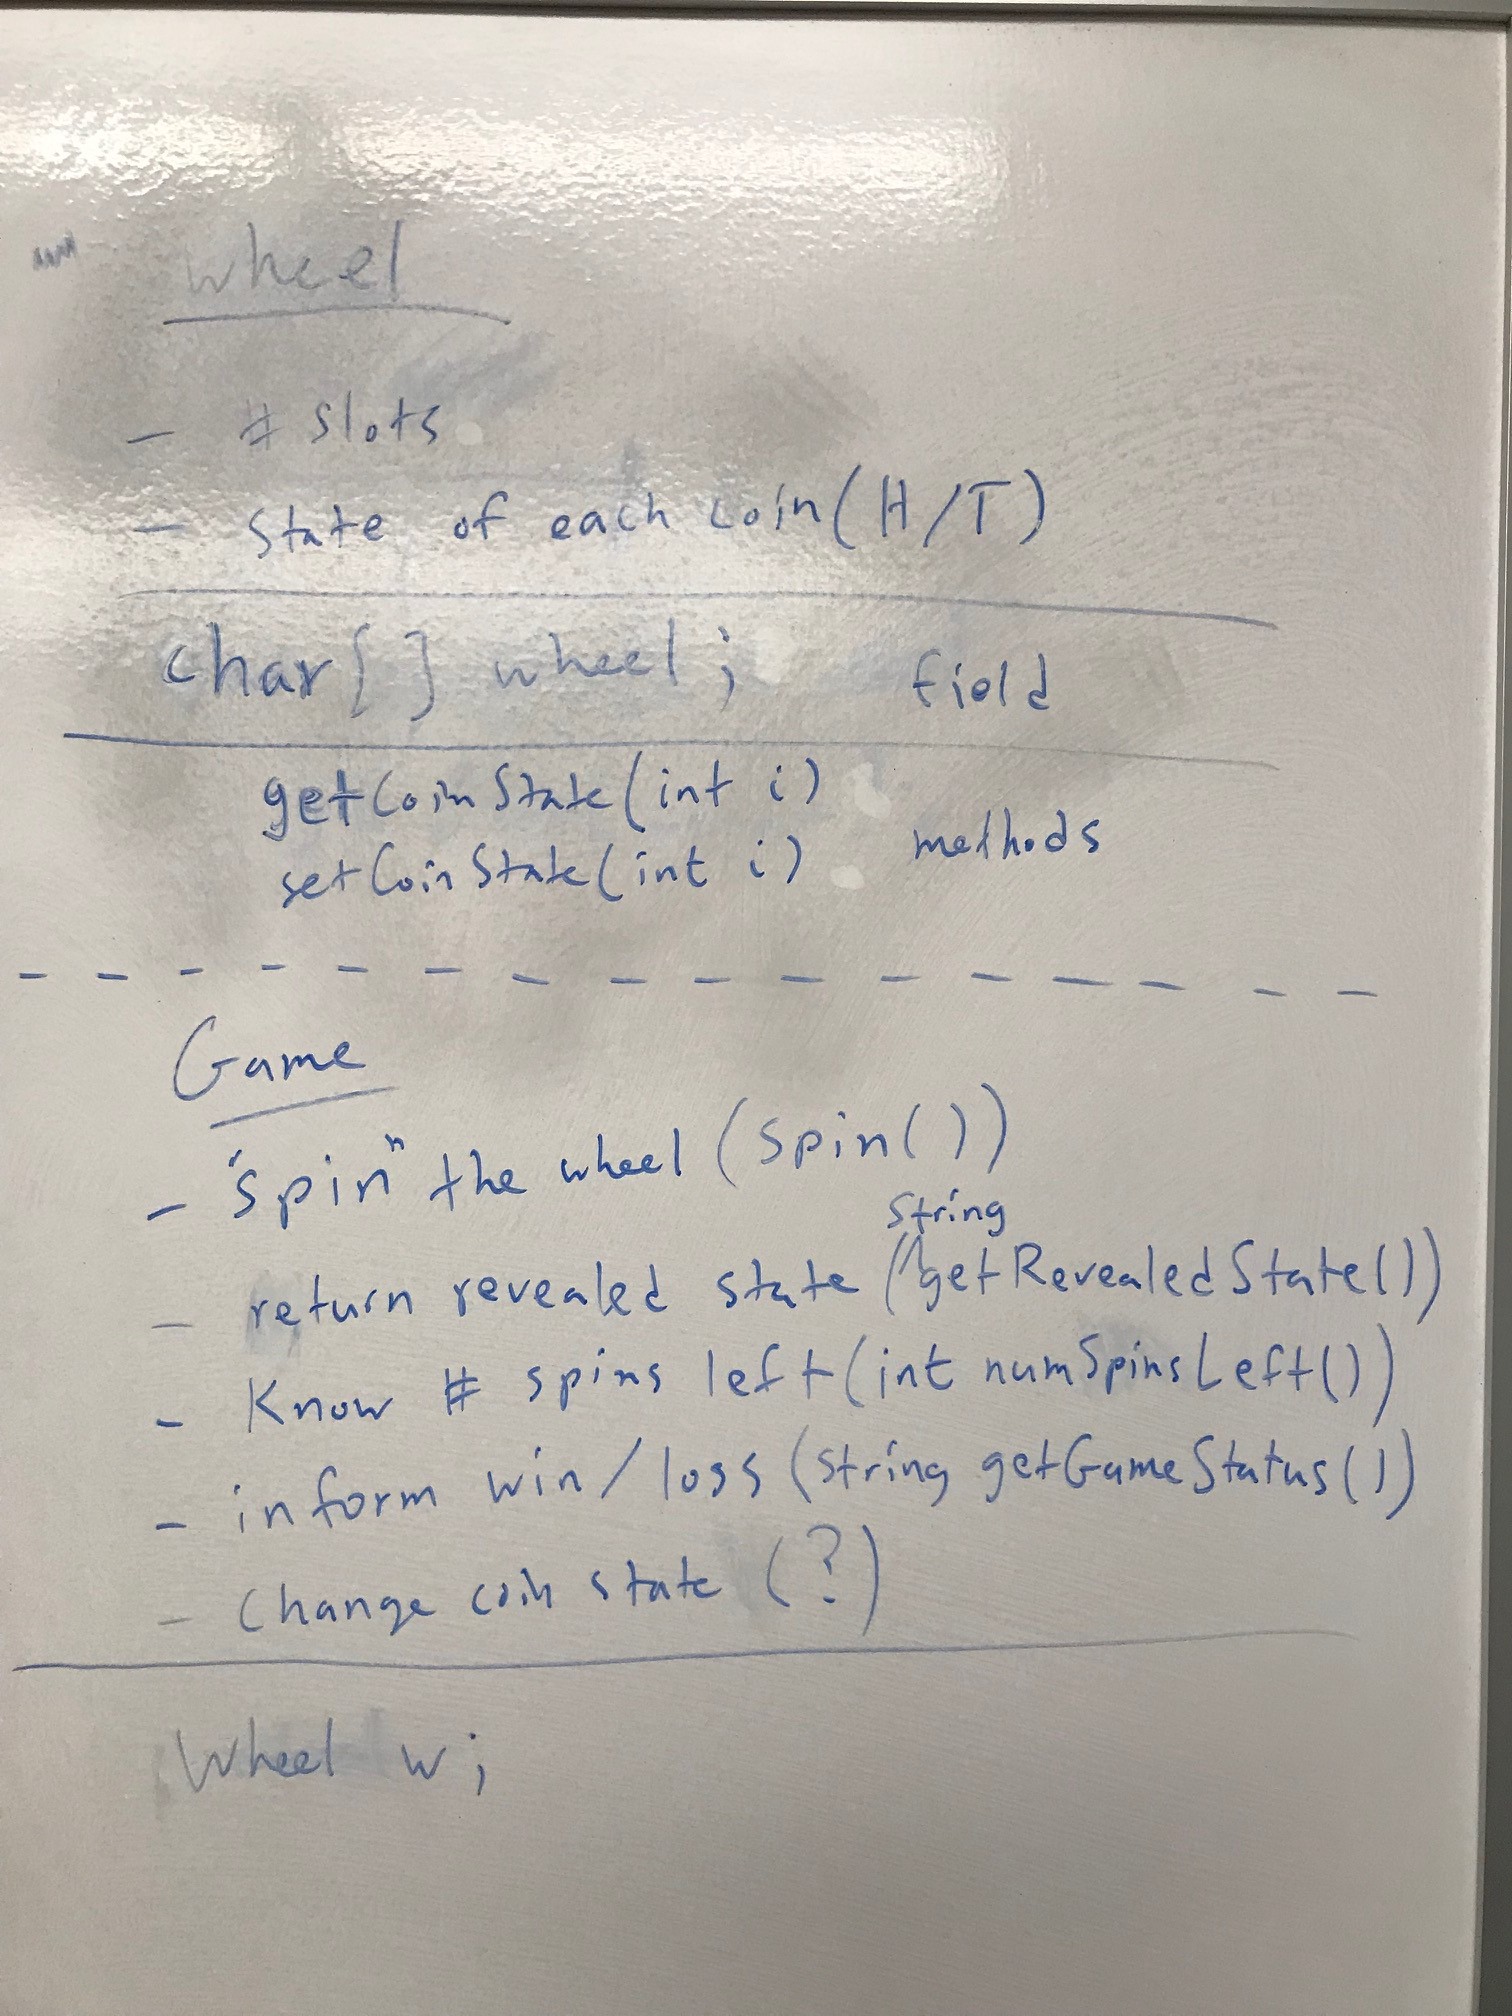 wheel
- # slots
- state of each coin (H/T)
char[] wheel; field
getCoinState(int i)
setCoinState(int i) methods
Game
- "spin" the wheel (spin())
String
- return revealed state (^getRevealedState())
- Know # spins left (int numSpinsLeft())
- inform win/loss (String getGameStatus())
- Change coin state (?)
Wheel w;